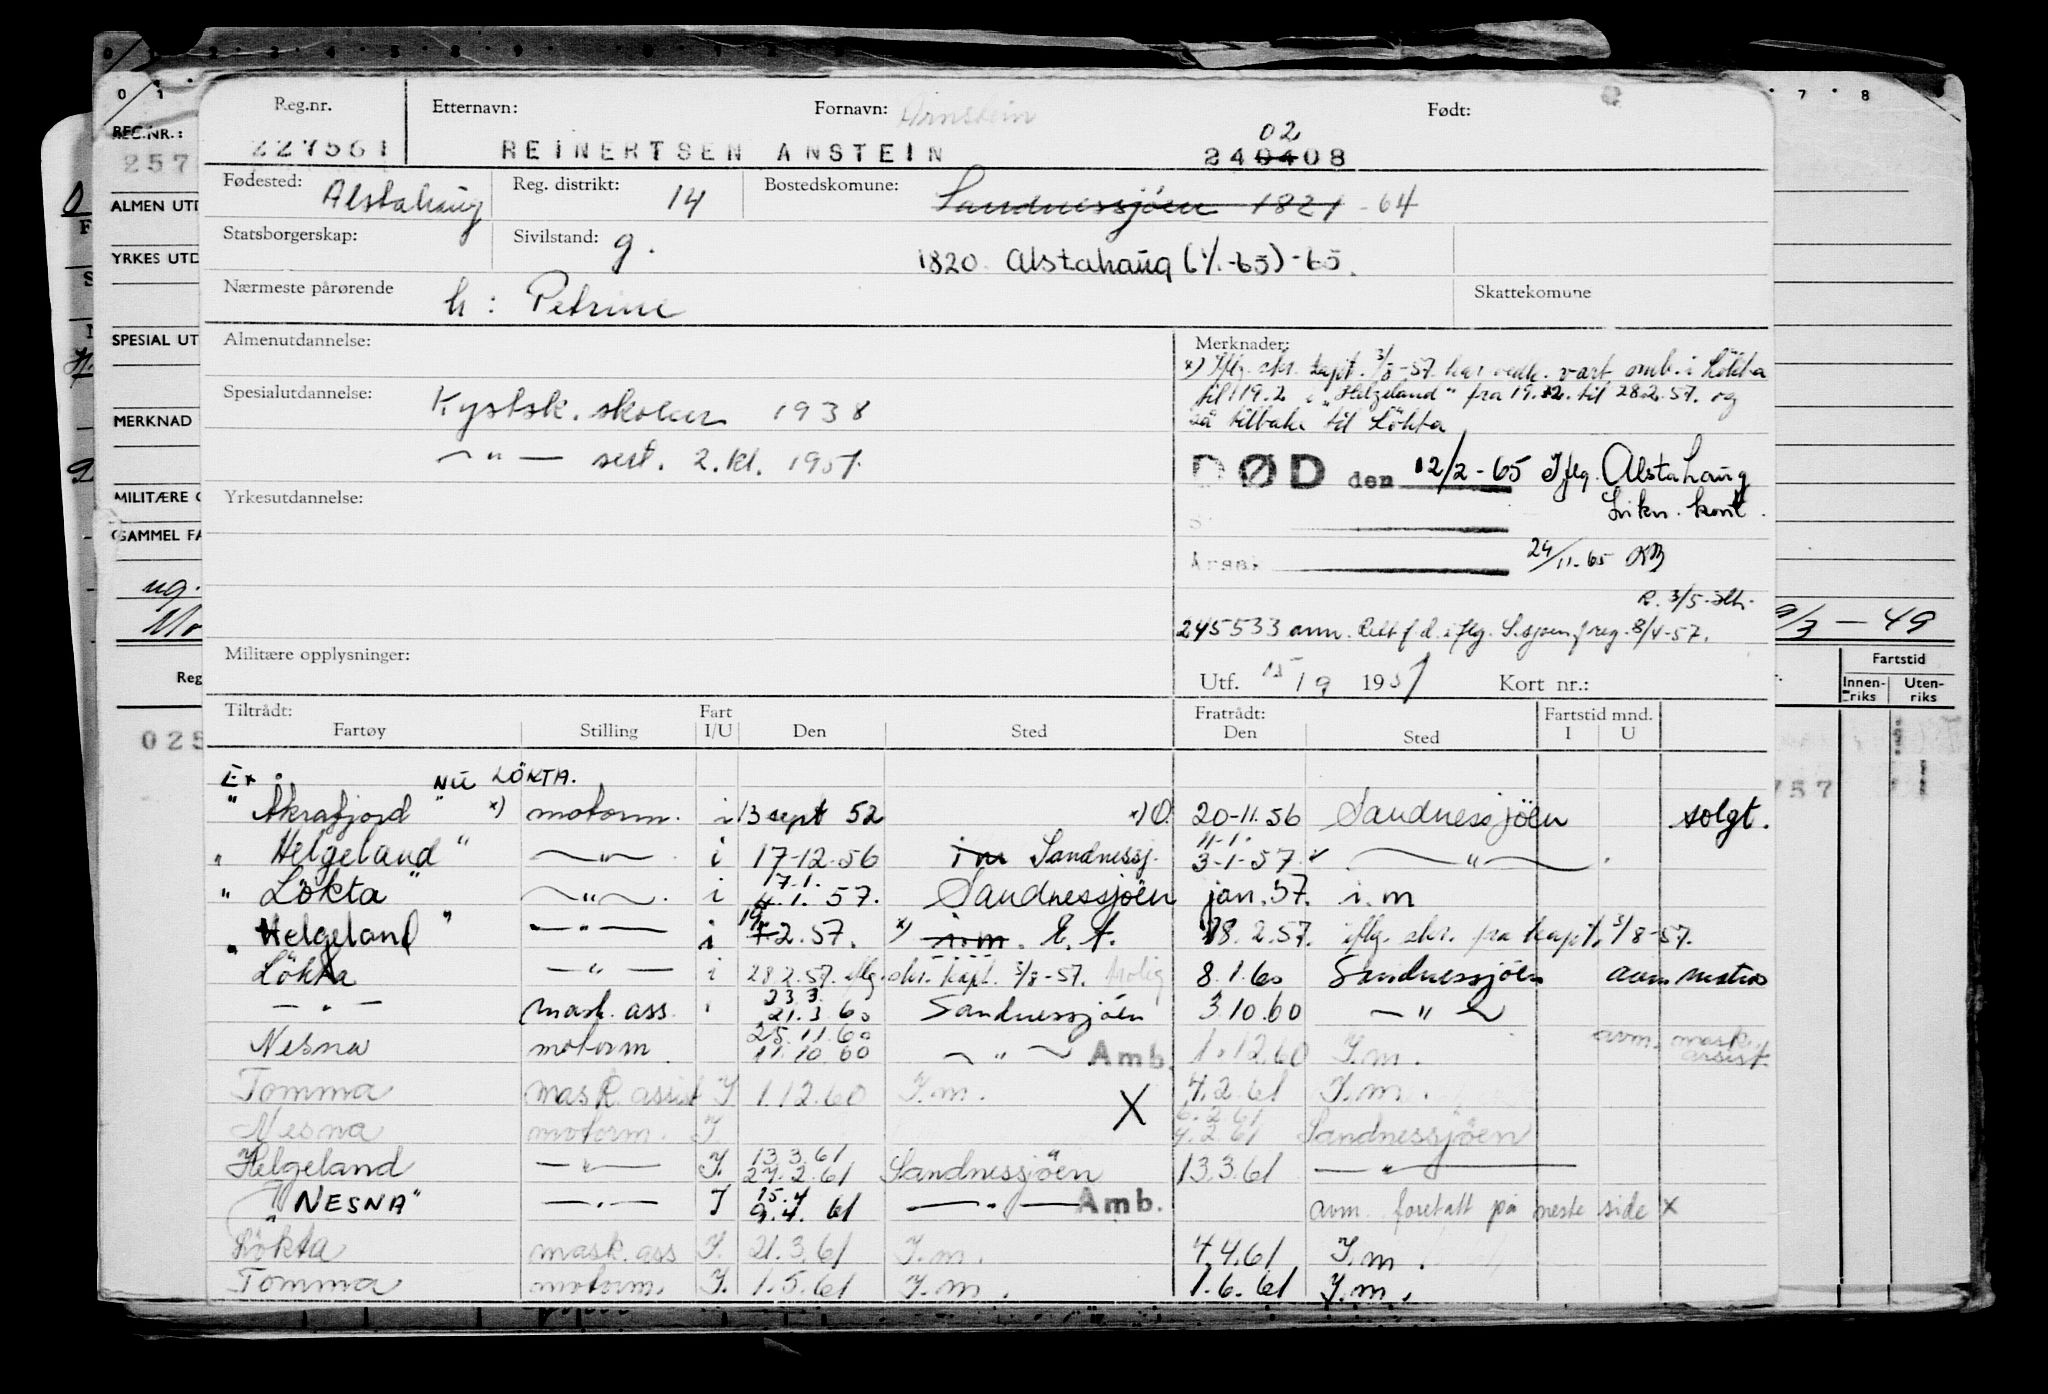 Reg.nr. Etternavn: Fornavn: Arnstein Født:
227561 REINERTSEN ANSTEIN 240408
02
Fødested: Alstahaug Reg. distrikt: 14 Bostedskomune: Sandnessjöen 1821 - 64
Statsborgerskap: Sivilstand: g. 1820 Alstahaug (1/1-65)-65.
Nærmeste pårørende h: Petrine Skattekomune
Almenutdannelse:
Spesialutdannelse: Kystsk. skolen 1938
—"— sert. 2. kl. 1951.
Yrkesutdannelse:
Militære opplysninger:
Merknader:
x) Iflg. skr. kapt. 3/8-57 har vedk. vært omb. i Lökta
til 19.2 i "Helgeland" fra 19.2. til 28.2.57. og
så tilbake til Lökta
DØD den 12/2-65 Iflg. Alstahaug
Likn. kont.
Årsak 24/11-65
R. 3/5-
245533 ann. Rett f.d. iflg. S.sjøen f reg. 8/4-57.
Utf. 15/9 1951 Kort nr.:
Tiltrådt: Fart Fratrådt: Fartstid mnd.
Fartøy Stilling I/U Den Sted Den Sted I U
Ex NU LÖKTA.
"Åkrafjord" x) motorm. i 13 sept 52 x) O. 20-11.56 Sandnessjöen solgt.
11-1-
"Helgeland" —"— i 17-12-56 i m Sandnessj. 3-1-57. —"—
17.1.
"Lökta" —"— i 4.1.57. Sandnessjöen jan.57. i.m
19
"Helgeland" —"— i 7.2.57. x) i.m. E.A. 28.2.57. iflg. skr. fra kapt. 3/8-57.
Lökta —"— i 28.2.57. iflg. skr. kapt. 3/8-57. trolig 8.1.60 Sandnessjöen avm. matros
23.3.
—"— mask. ass. 21.3.60 Sandnessjöen 3.10.60 —"—
25.11.60
Nesna motorm. 11.10.60 —"— Amb. 1.12.60 I.m. avm. mask. assist.
Tomma mask. assist I 1.12.60 I.m. X 4.2.61 I.m.
6.2.61
Nesna motorm. I. 4.2.61 Sandnessjöen
13.3.61
Helgeland —"— I. 27.2.61 Sandnessjöen 13.3.61 —"—
15.4
"NESNA" —"— I 9.4.61 —"— Amb. avm. foretatt på neste side X
Lökta mask. ass I. 21.3.61 I.m. 4.4.61 I.m.
Tomma motorm. I. 1.5.61 I.m. 1.6.61 I.m.
REG.NR.:
257
ALMEN UTD
YRKES UTD
SPECIAL UT
MERKNAD
MILITÆRE
GAMMEL FA
ug.
Reg
025
9/3 - 49
Fartstid
Innen-riks Uten-riks
757